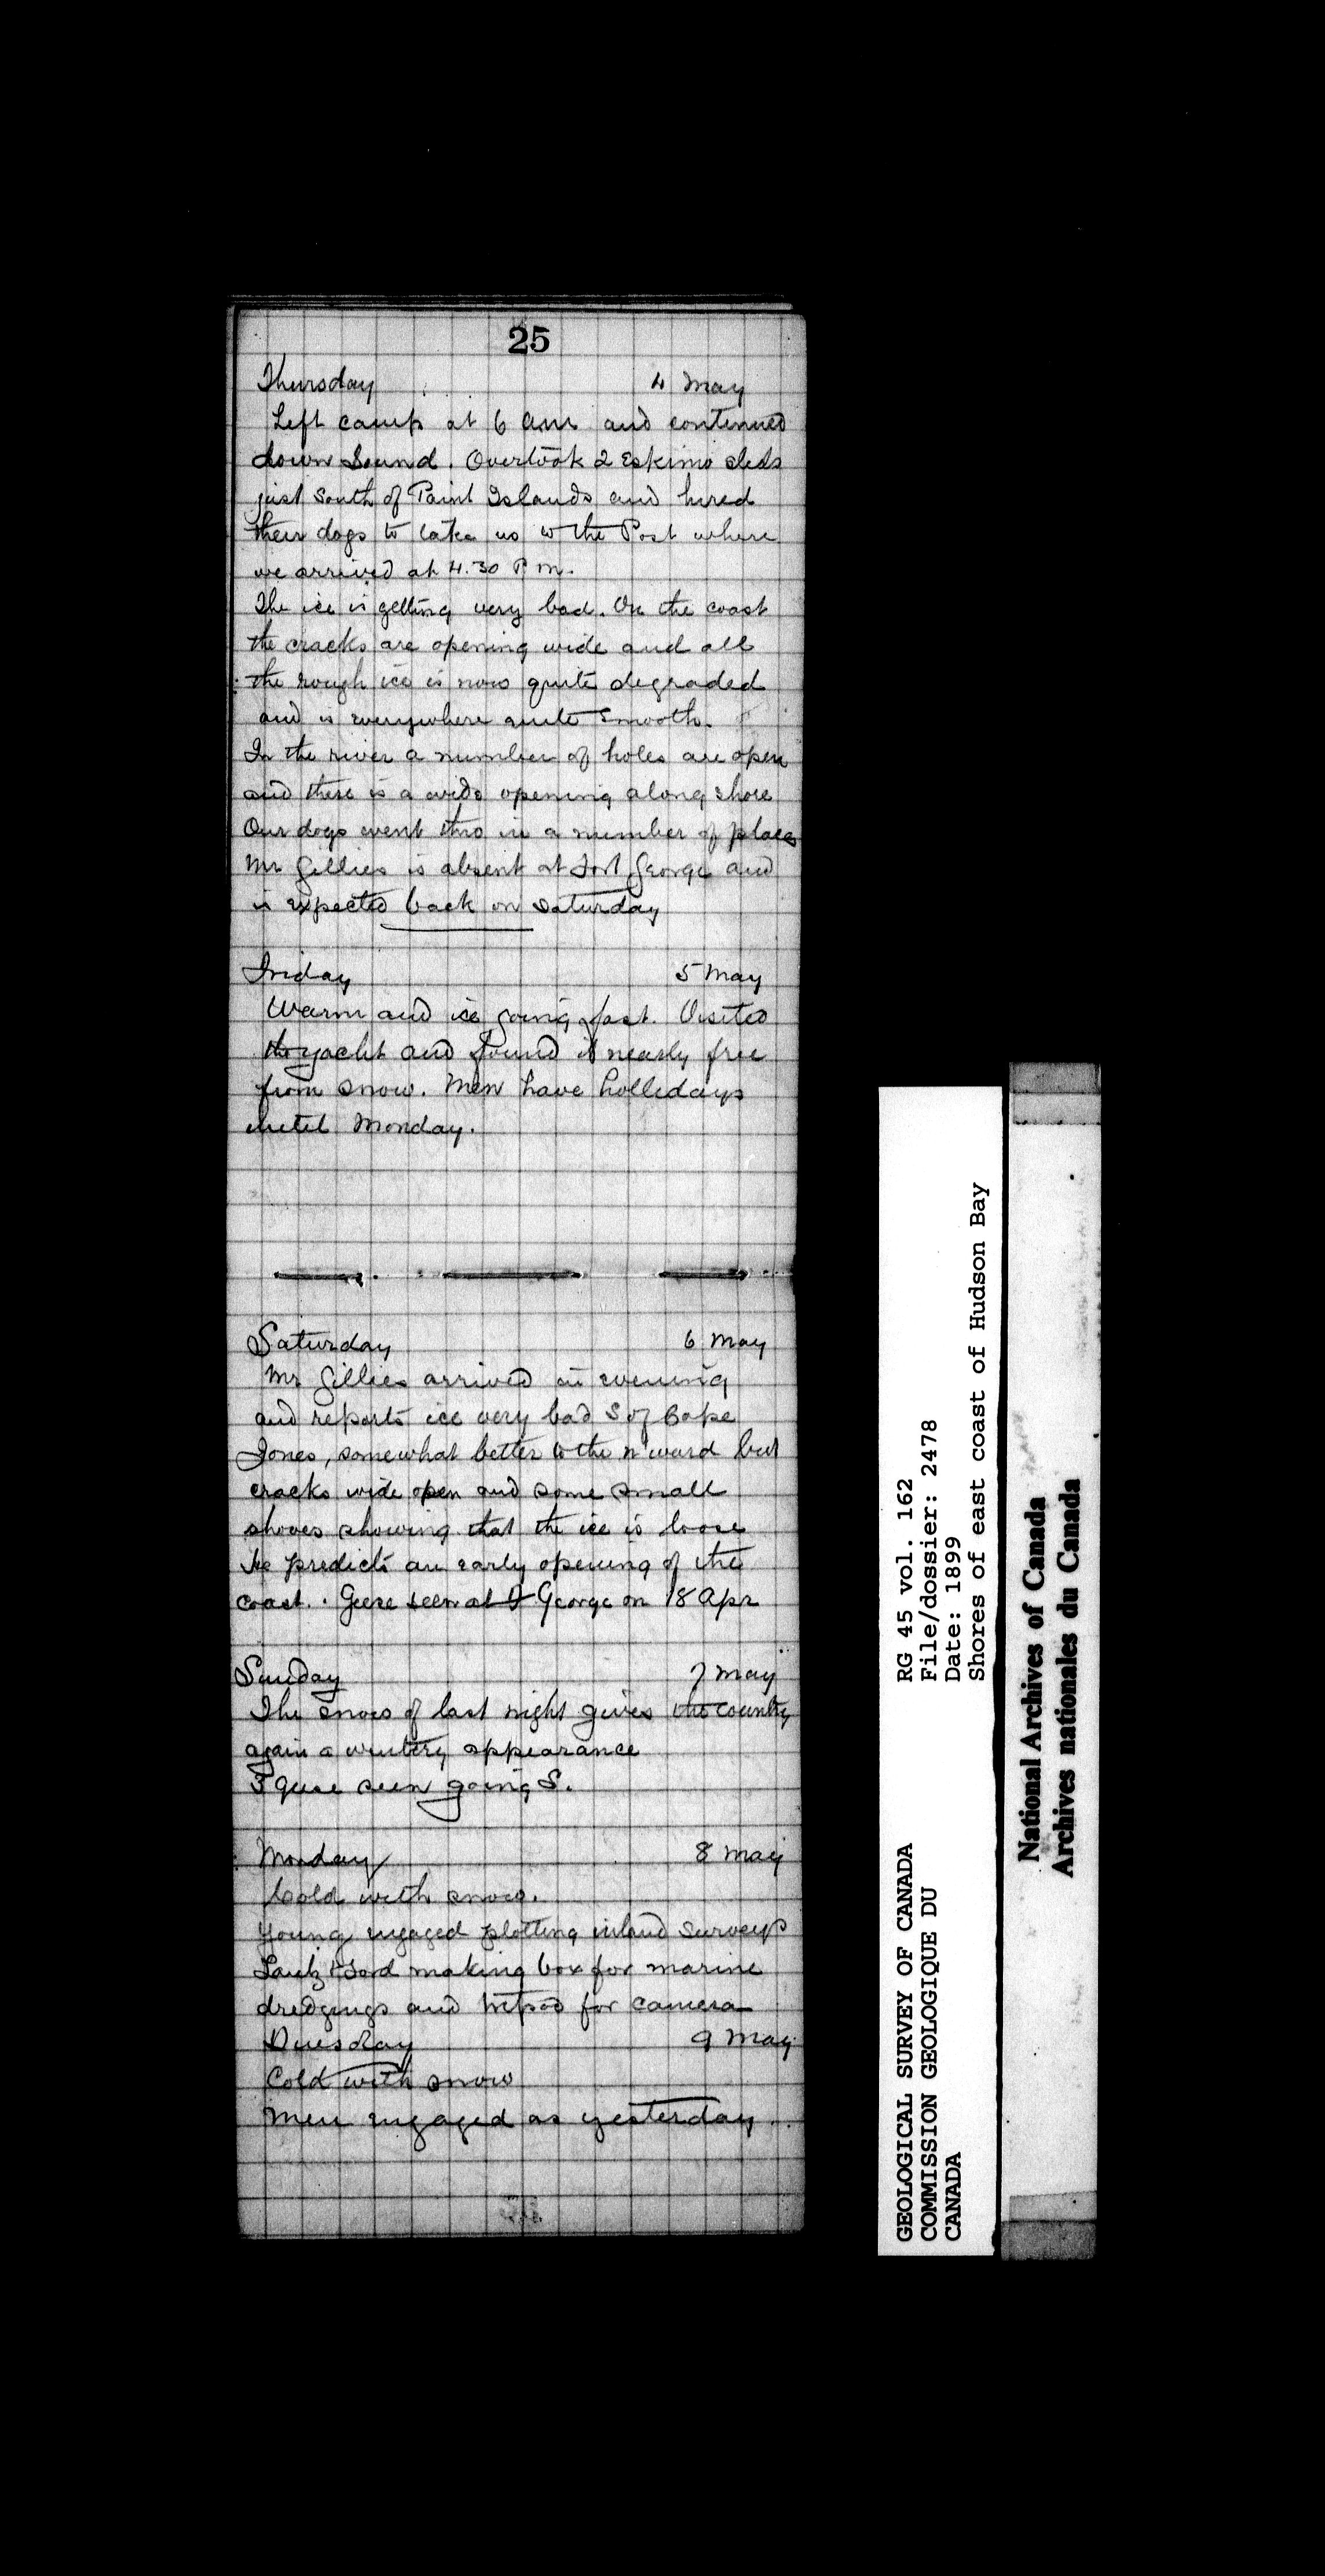 25
Thursday 4 May
Left camp at 6 am and continued
down Sound. Overtook 2 Eskimo sleds
just South of Paint Islands and hired
their dogs to take us to the Post where
we arrived at 4.30 P.m.
The ice is getting very bad. On the coast
the cracks are opening wide and all
the rough ice is now quite degraded
and is everywhere quite smooth.
In the river a number of holes are open
and there is a wide opening along shore
Our dogs went thro in a number of places
Mr Gillies is absent at Fort George and
is expected back on Saturday
Friday 5 May
Warm and ice going fast. Visited
the yacht and found it nearly free
from snow. Men have hollidays
until Monday.
Saturday 6 May
Mr Gillies arrived in evening
and reports ice very bad S of Cape
Jones, somewhat better to the n'ward but
cracks wide open and some small
shoves showing that the ice is loose
He predicts an early opening of the
coast. Geese seen at Ft George on 18 Apr
Sunday 7 May
The snow of last night gives the country
again a wintery appearance
3 geese seen going S.
Monday 8 May
Cold with snow.
Young engaged plotting inland surveys
making box for marine
dredgings and tripod for camera
Tuesday 9 May
Cold with snow
Men engaged as yesterday.
GEOLOGICAL SURVEY OF CANADA
COMMISSION GEOLOGIQUE DU
CANADA
RG 45 vol. 162
File/dossier: 2478
Date: 1899
Shores of east coast of Hudson Bay
National Archives of Canada
Archives nationales du Canada